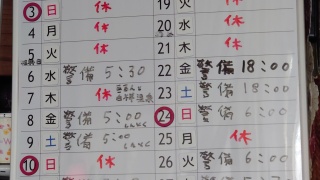 3 日 休
4 月 休
5 火 休
6 水 警備 5:30
7 木 休
8 金 警備 5:00
9 土 警備 5:00
10 日 休
19 火 休
20 水 休
21 木 休
22 金 警備 18:00
23 土 警備 18:00
24 日 警備 6:00
25 月 休
26 火 警備 6:00